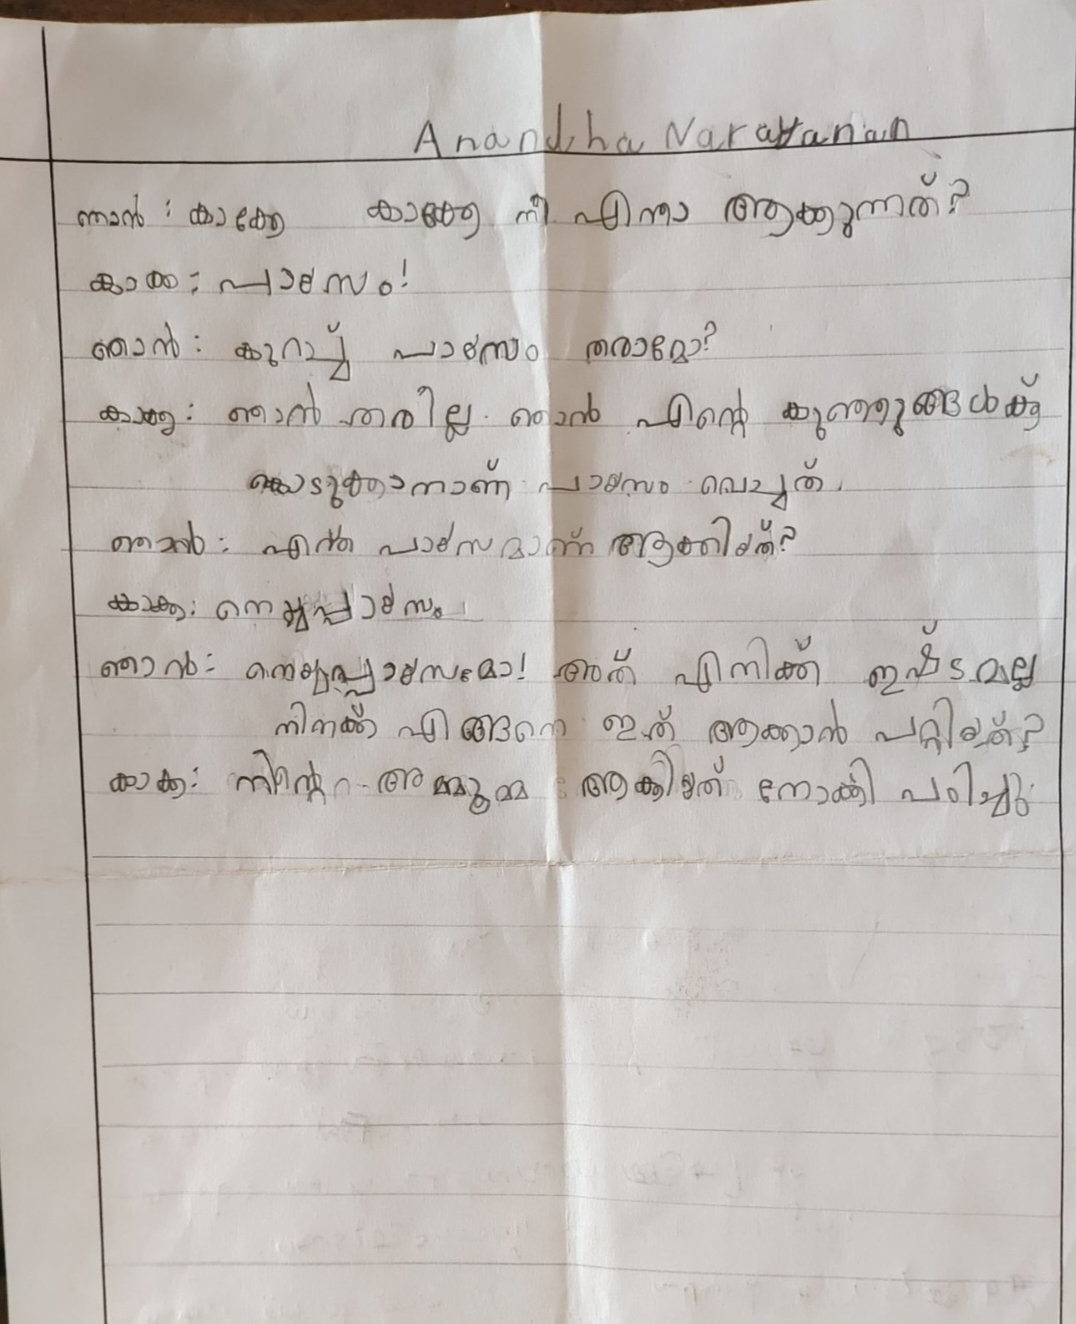 Anandha Narayanan
ഞാൻ : കാക്കേ കാക്കേ നീ എന്താ ആക്കുന്നത്?
കാക്ക : പായസം!
ഞാൻ : കുറച്ച് പായസം തരാമോ?
കാക്ക : ഞാൻ തരില്ല. ഞാൻ എന്റെ കുഞ്ഞുങ്ങൾക്ക്
കൊടുക്കാനാണ് പായസം വെച്ചത്.
ഞാൻ : എന്ത് പായസമാണ് ആക്കിയത്?
കാക്ക : നെയ്യപ്പായസം
ഞാൻ : നെയ്യപ്പായസമോ! അത് എനിക്ക് ഇഷ്ടമല്ല
നിനക്ക് എങ്ങനെ ഇത് ആക്കാൻ പറ്റിയത്?
കാക്ക : നിന്റെ അമ്മൂമ്മ ആക്കിയത് നോക്കി പഠിച്ചു.